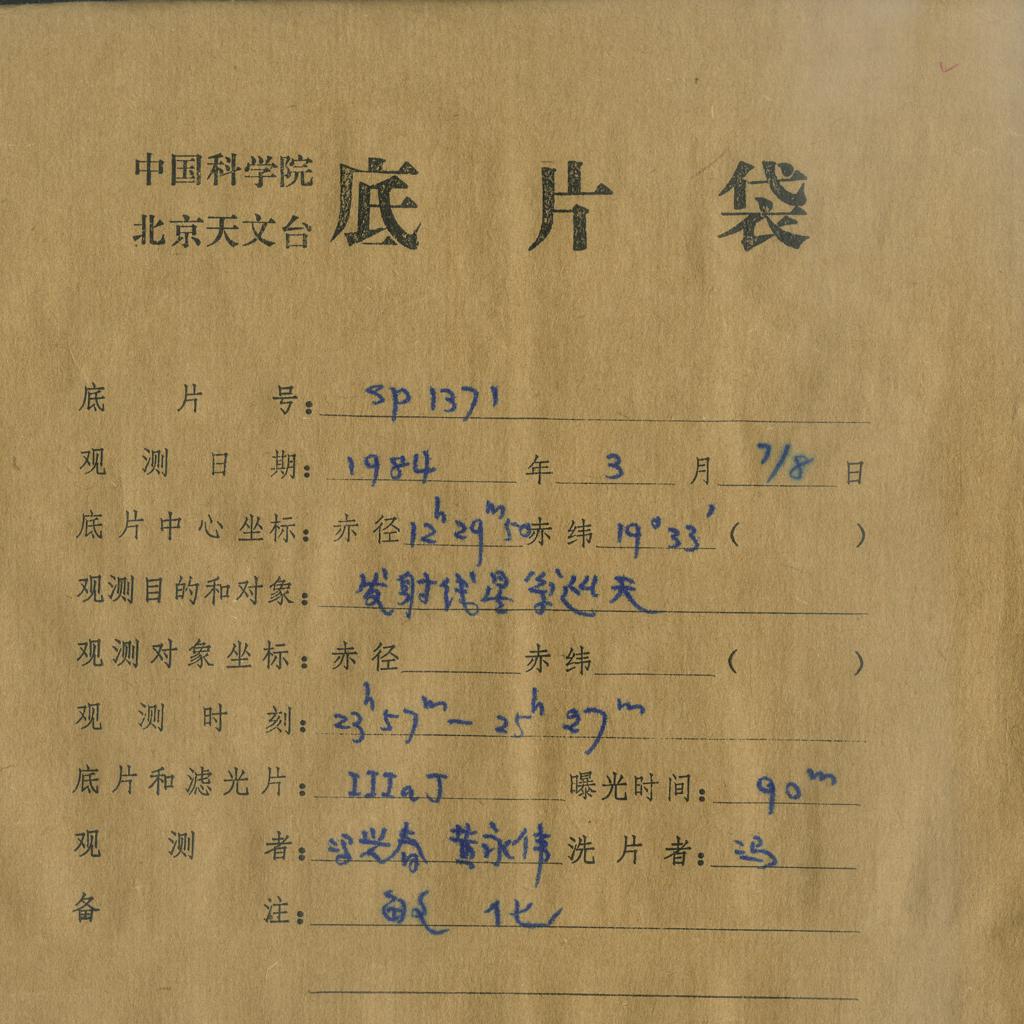 中国科学院
北京天文台 底片袋
底片号: sp 1371
观测日期: 1984 年 3 月 7/8 日
底片中心坐标: 赤径 12h 29m 50 赤纬 19°33′ ( )
观测目的和对象: 发射线星系巡天
观测对象坐标: 赤径 赤纬 ( )
观测时刻: 23h 57m — 25h 27m
底片和滤光片: IIIaJ 曝光时间: 90m
观测者: 兴春 黄永伟 洗片者: 冯
备注: 敏化